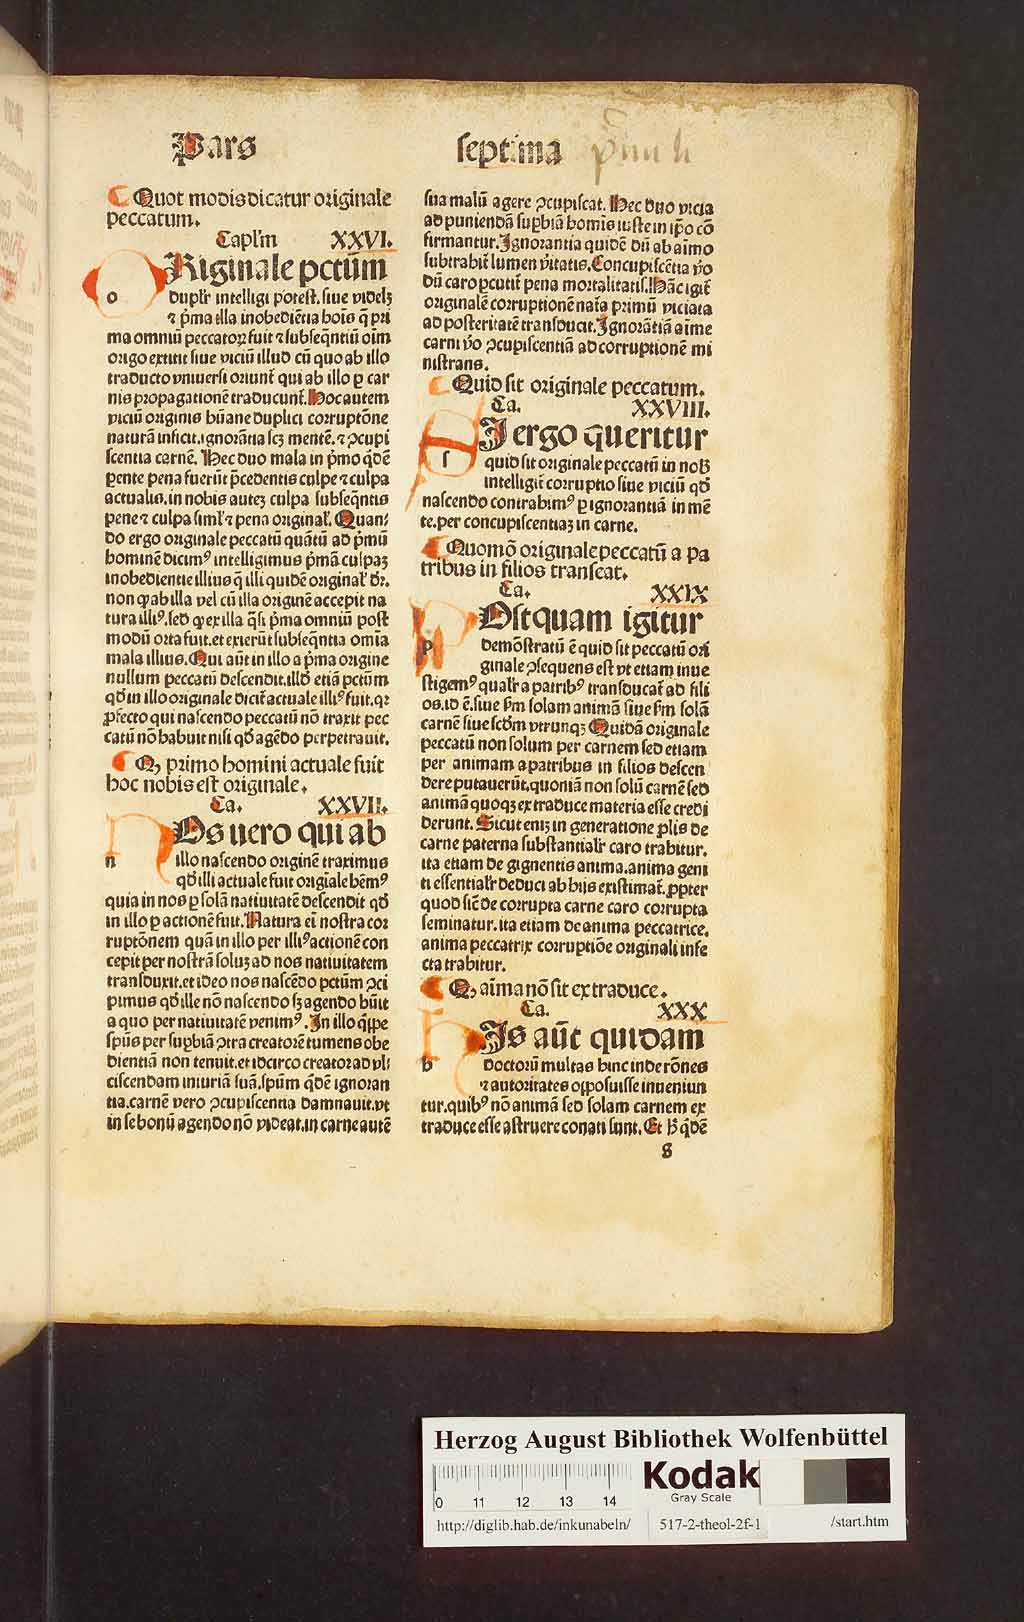 Pars septima
Quot modis dicatur originale
peccatum.
Capl'm XXVI.
ORiginale pctūm
duplr̄ intelligi potest. siue videlꝫ
⁊ p̄ma illa inobediētia hoīs q̄ pri
ma omniū peccatoꝝ fuit ⁊ subseq̄ntiū oīm
origo extitit siue viciū illud cū quo ab illo
traducto vniuersi oriunt̄ qui ab illo ꝑ car
nis propagationē traducunt̄. Hoc autem
viciū originis hūane duplici corruptōne
naturā inficit. ignorātia scꝫ mentē. ⁊ ꝯcupi
scentia carnē. Hec duo mala in p̄mo q̄dē
ꝑente pena fuerūt p̄cedentis culpe ⁊ culpa
actualis. in nobis autez culpa subseq̄ntis
pene ⁊ culpa siml' ⁊ pena original'. Quan⸗
do ergo originale peccatū quātū ad p̄mū
hominē dicimꝰ intelligimus p̄mā culpaꝫ
inobedientie illius q̄ illi quidē original' dr̄.
non ꝙ ab illa vel cū illa originē accepit na
tura illiꝰ. sed ꝙ ex illa q̄si p̄ma omniū post
modū orta fuit. et exierūt subseq̄ntia omīa
mala illius. Qui aūt in illo a p̄ma origine
nullum peccatū descendit. illd' etiā pctūm
qd' in illo originale dicit̄ actuale illiꝰ fuit. qꝛ
ꝓfecto qui nascendo peccatū nō traxit pec
catū nō habuit nisi qd' agēdo perpetrauit.
Qꝫ primo homini actuale fuit
hoc nobis est originale.
Ca. XXVII.
NOs uero qui ab
illo nascendo originē traximus
qd' illi actuale fuit origīale hēmꝰ
quia in nos ꝑ solā natiuitatē descendit qd'
in illo ꝑ actionē fuit. Natura eī nostra cor
ruptōnem quā in illo per illiꝰ actionē con
cepit per nostrā soluꝫ ad nos natiuitatem
transduxit. et ideo nos nascēdo pctūm ꝯci
pimus qd' ille nō nascendo sꝫ agendo hūit
a quo per natiuitatē venimꝰ. In illo q̄ppe
sp̄us per suꝑbiā ꝯtra creatorē tumens obe
dientiā non tenuit. et idcirco creator ad vl
ciscendam iniuriā suā. sp̄um q̄dē ignoran
tia. carnē vero ꝯcupiscentia damnauit. vt
in se bonū agendo nō videat. in carne autē
sua malū agere ꝯcupiscat. Hec duo vicia
ad puniendā suꝑbiā homīs iuste in ip̄o cō
firmantur. Ignorantia quidē dū ab aīmo
subtrahit lumen v̄itatis. Concupiscētia v̄o
dū caro ꝑcutit̄ pena mortalitatis. Hāc igit̄
originalē corruptionē nat̄a primū viciata
ad posteritatē transducit. Ignorātiā aīme
carni v̄o ꝯcupiscentiā ad corruptionē mi
nistrans.
Quid sit originale peccatum.
Ca. XXVIII.
SI ergo queritur
quid sit originale peccatū in nob̄
intelligit̄ corruptio siue viciū qd'
nascendo contrahimꝰ ꝑ ignorantiā in mē
te. per concupiscentiaꝫ in carne.
Quomō originale peccatū a pa
tribus in filios transeat.
Ca. XXIX
POstquam igitur
demōstratū ē quid sit peccatū ori
ginale ꝯsequens est vt etiam inue
stigemꝰ qualr̄ a patribꝰ transducat̄ ad fili
os. id ē. siue s'm solam animā siue s'm solā
carnē siue scd'm vtrunqꝫ Quidā originale
peccatū non solum per carnem sed etiam
per animam a patribus in filios descen
dere putauerūt. quoniā non solū carnē sed
animā quoqꝫ ex traduce materia esse credi
derunt. Sicut eniꝫ in generatione ꝓlis de
carne paterna substantialr̄ caro trahitur.
ita etiam de gignentis anima. anima geni
ti essentialr̄ deduci ab hijs existimat̄. ꝓpter
quod sic̄ de corrupta carne caro corrupta
seminatur. ita etiam de anima peccatrice.
anima peccatrix corruptiōe originali infe
cta trahitur.
Qꝫ aīma nō sit ex traduce.
Ca. XXX
HIs aūt quidam
doctorū multas hinc inde rōnes
⁊ autoritates opposuisse inueniun
tur. quibꝰ nō animā sed solam carnem ex
traduce esse astruere conati sunt. Et h̄ q̄dē
8
Herzog August Bibliothek Wolfenbüttel
0 11 12 13 14
Kodak
Gray Scale
http://diglib.hab.de/inkunabeln/ 517-2-theol-2f-1 /start.htm